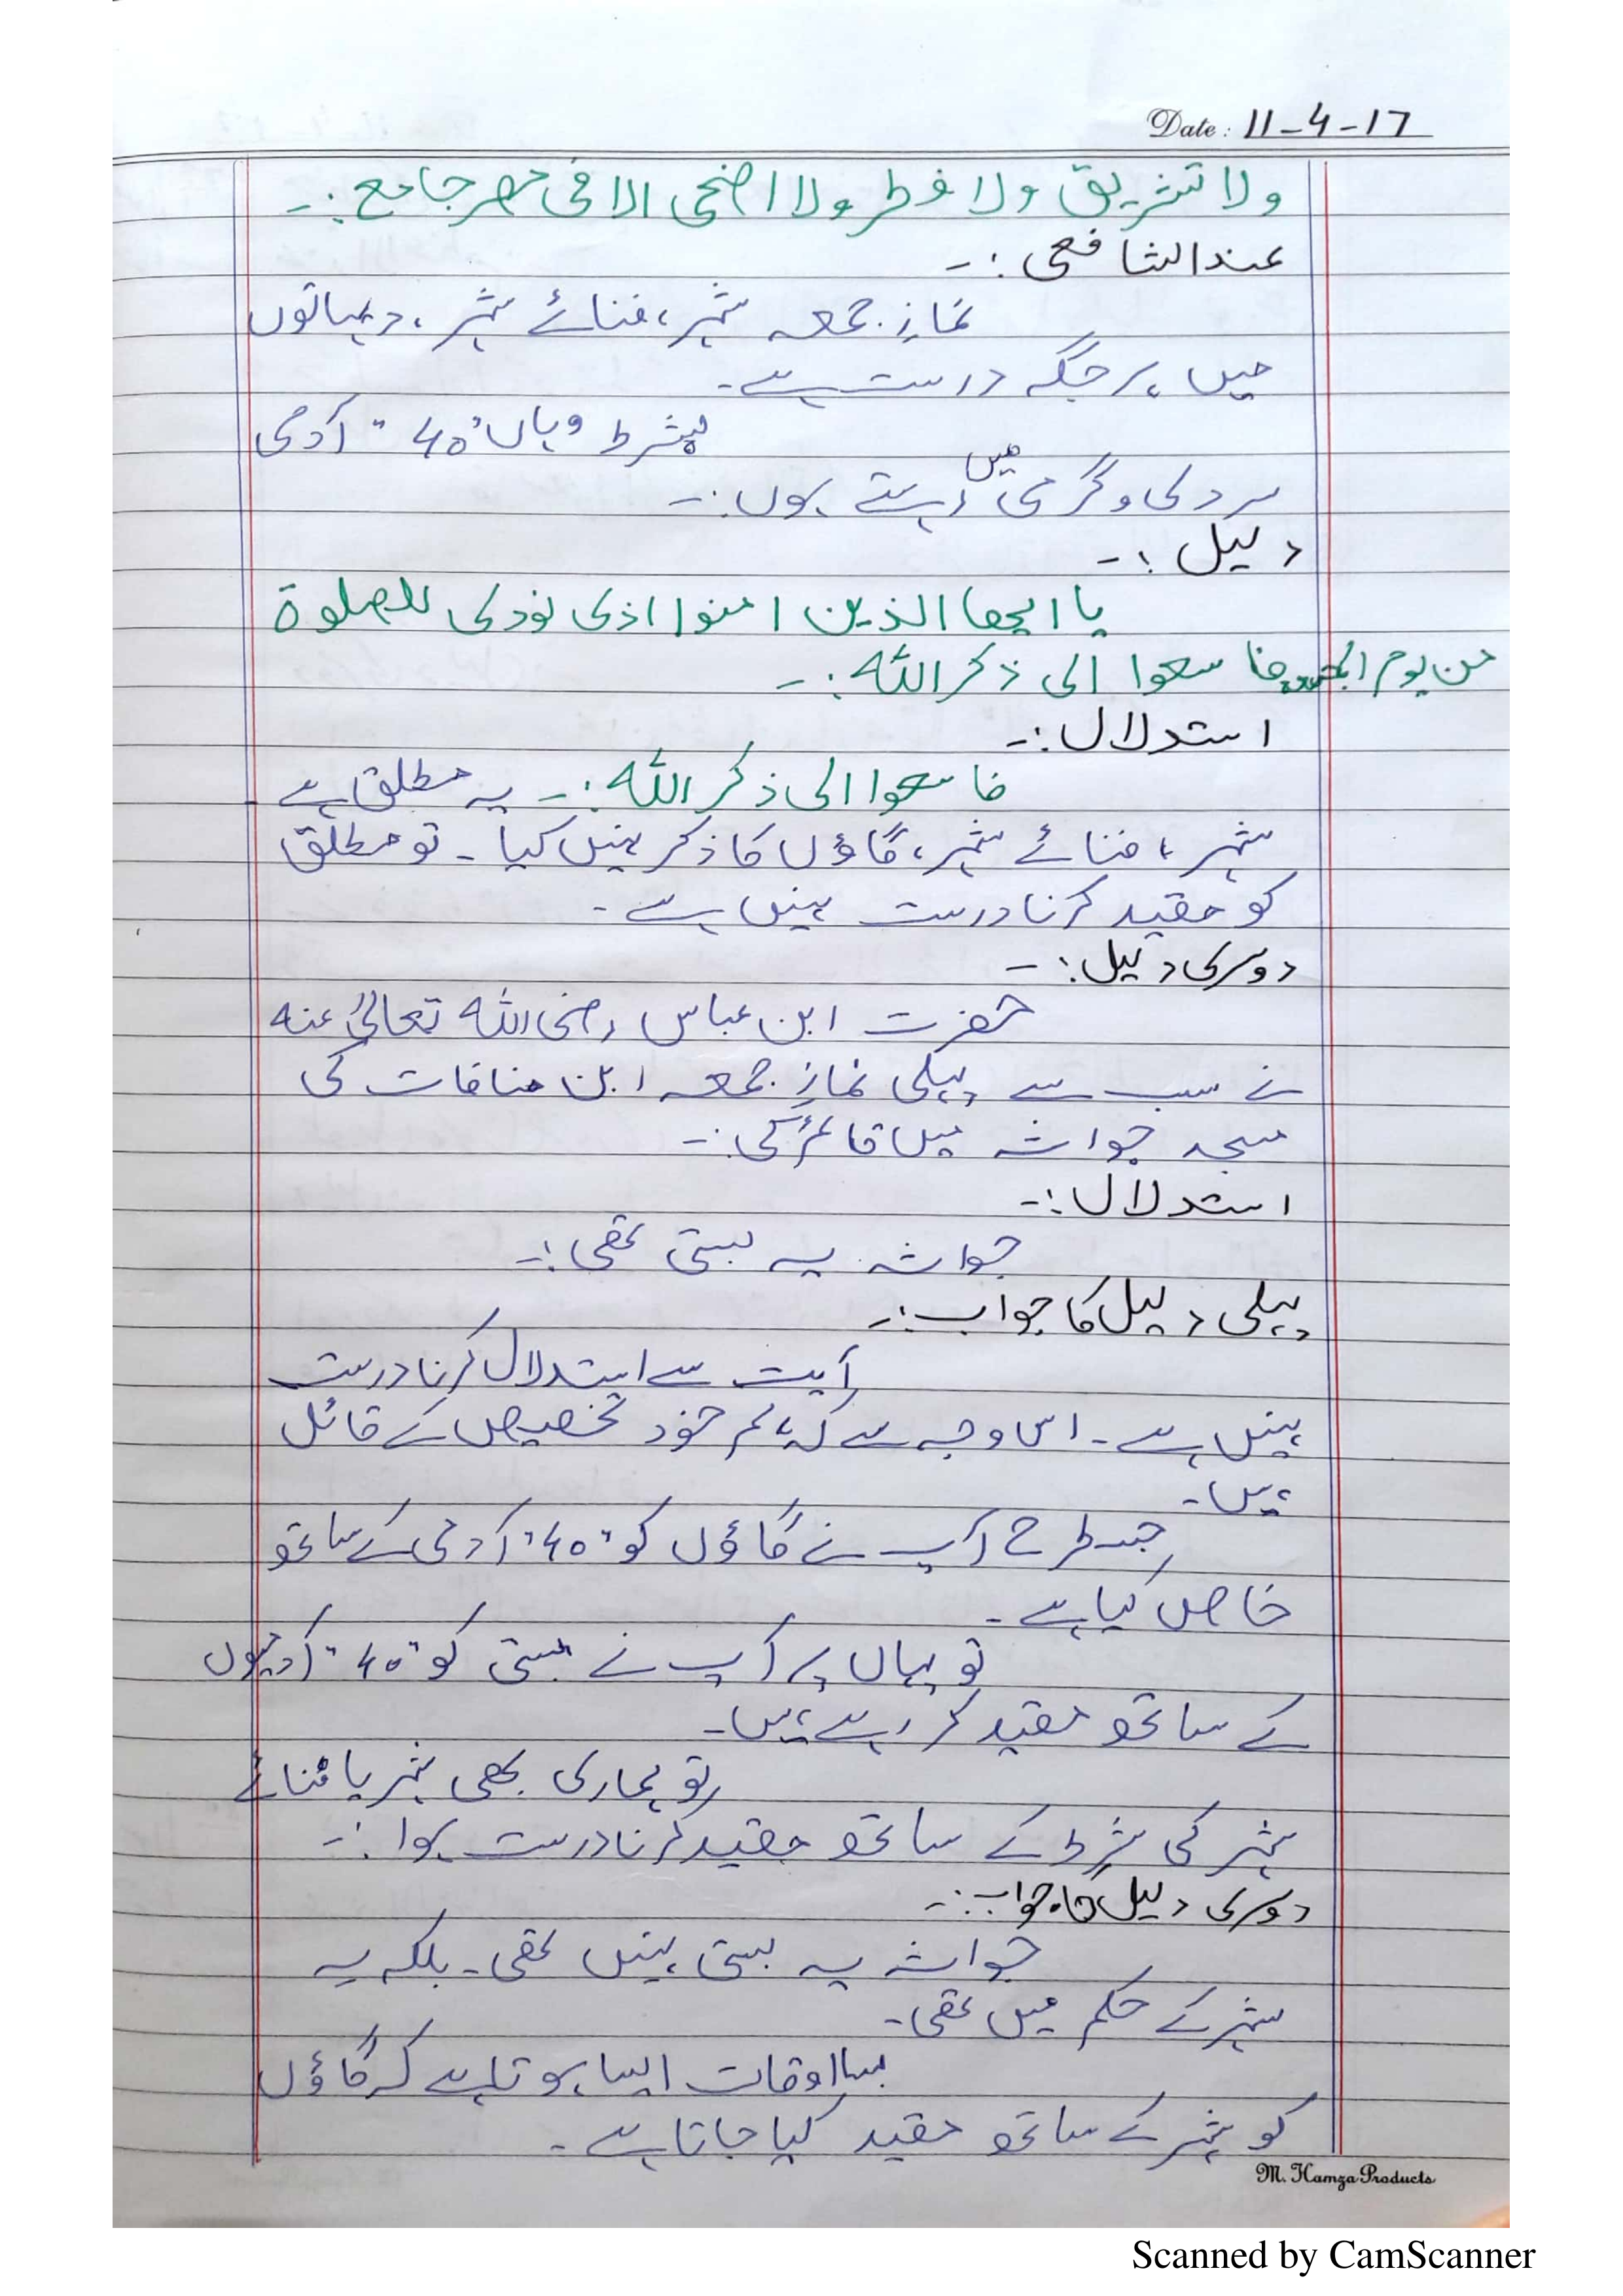 Date: 11-4-17
ولا تشریق ولا فطر ولا اضحی الا فی مصر جامع :-
عند الشافعی :-
نمازِ جمعہ شہر، فنائے شہر، دیہاتوں
میں ہر جگہ درست ہے۔
بشرط وہاں "40" آدمی
سردی و گرمی میں رہتے ہوں :-
دلیل :-
یا ایھا الذین امنوا اذی نودی للصلوة
من یوم الجمعہ فا سعوا الی ذکر اللہ :-
استدلال :-
فا سعوا الی ذکر اللہ :- یہ مطلق ہے
شہر، فنائے شہر، گاؤں کا ذکر نہیں کیا - تو مطلق
کو مقید کرنا درست نہیں ہے -
دوسری دلیل :-
حضرت ابن عباس رضی اللہ تعالیٰ عنہ
نے سب سے پہلی نمازِ جمعہ ابن منافات کی
مسجد جواثہ میں قائم کی :-
استدلال :-
جواثہ یہ بستی تھی :-
پہلی دلیل کا جواب :-
آیت سے استدلال کرنا درست
نہیں ہے - اس وجہ سے کہ تم خود تخصیص کے قائل
ہیں -
جس طرح آپ نے گاؤں کو "40" آدمی کے ساتھ
خاص کیا ہے -
تو یہاں پر آپ نے بستی کو "40" آدمیوں
کے ساتھ مقید کر رہے ہیں -
تو ہماری بھی شہر یا فنائے
شہر کی شرط کے ساتھ مقید کرنا درست ہوا :-
دوسری دلیل کا جواب :-
جواثہ یہ بستی نہیں تھی - بلکہ یہ
شہر کے حکم میں تھی -
بسااوقات ایسا ہوتا ہے کہ گاؤں
کو شہر کے ساتھ مقید کیا جاتا ہے -
M. Hamza Products
Scanned by CamScanner